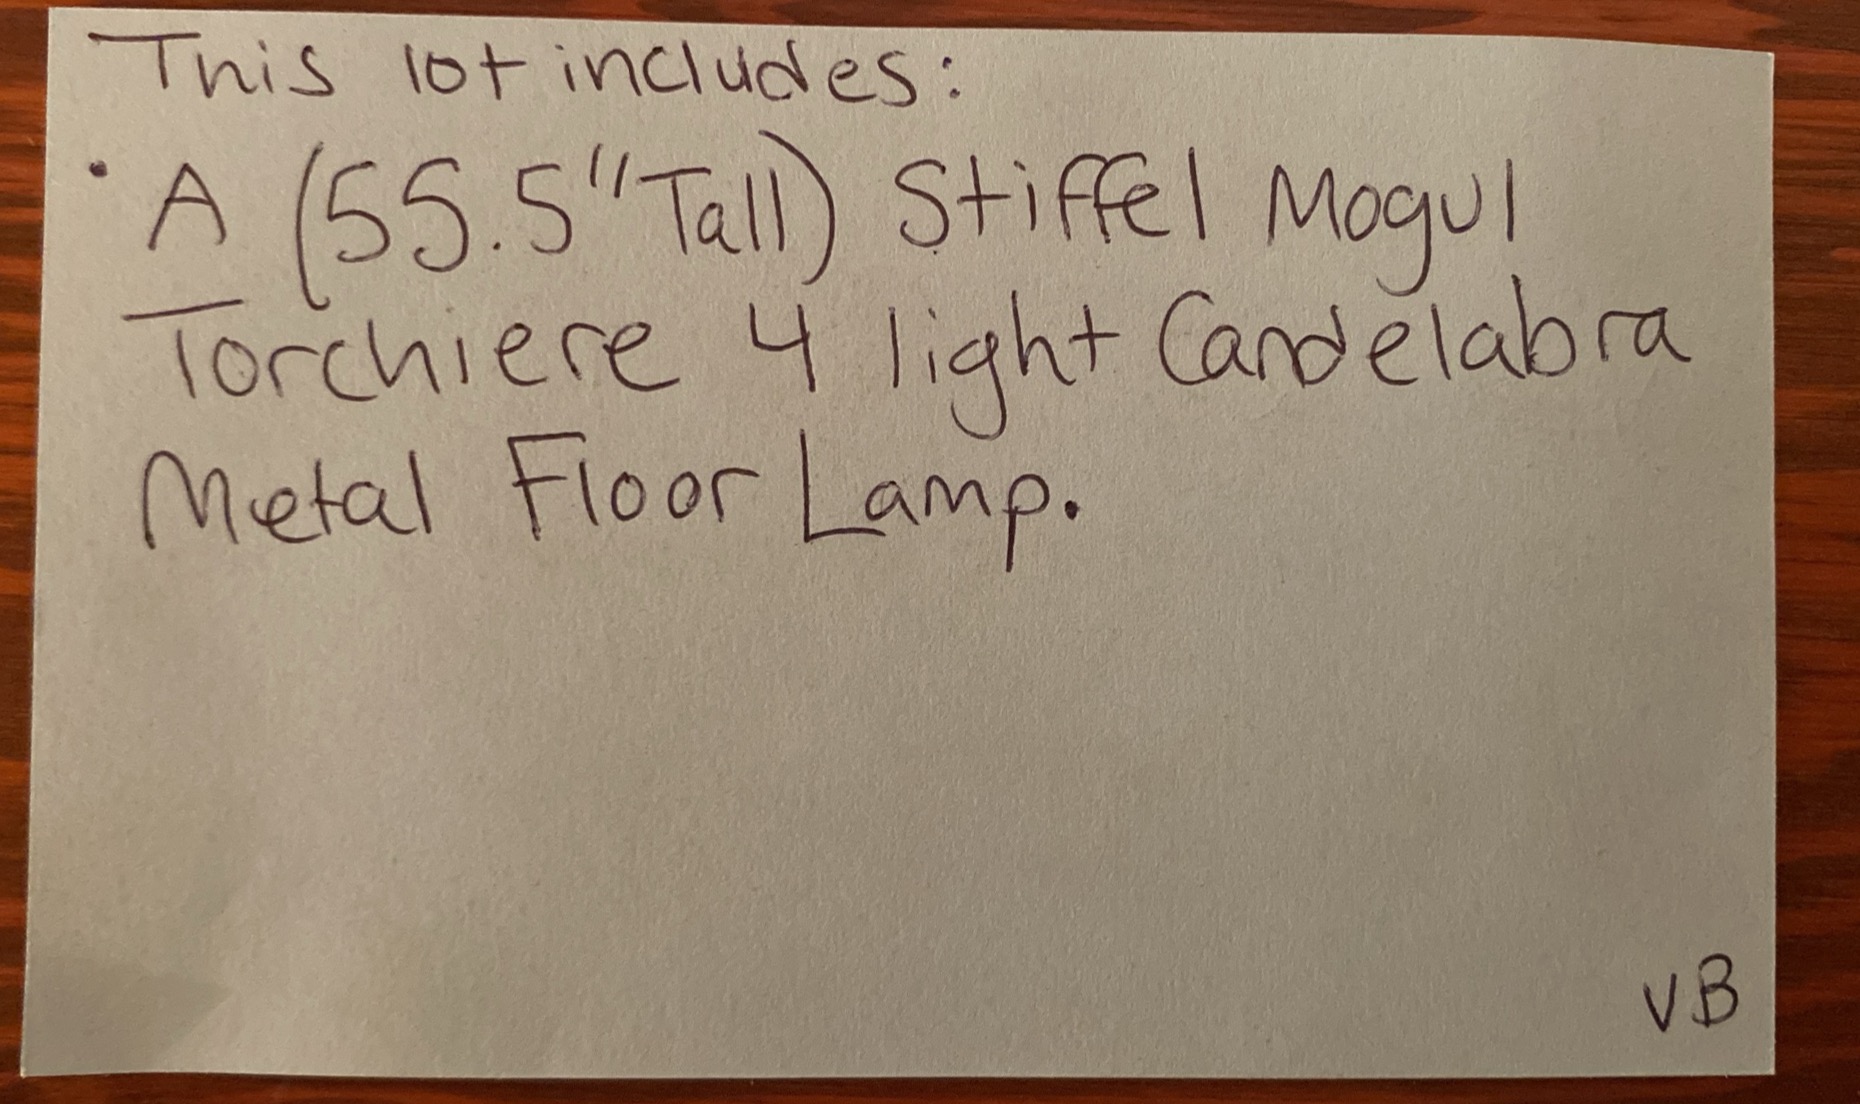 This lot includes:
• A (55.5" Tall) Stiffel Mogul
Torchiere 4 light Candelabra
Metal Floor Lamp.
VB